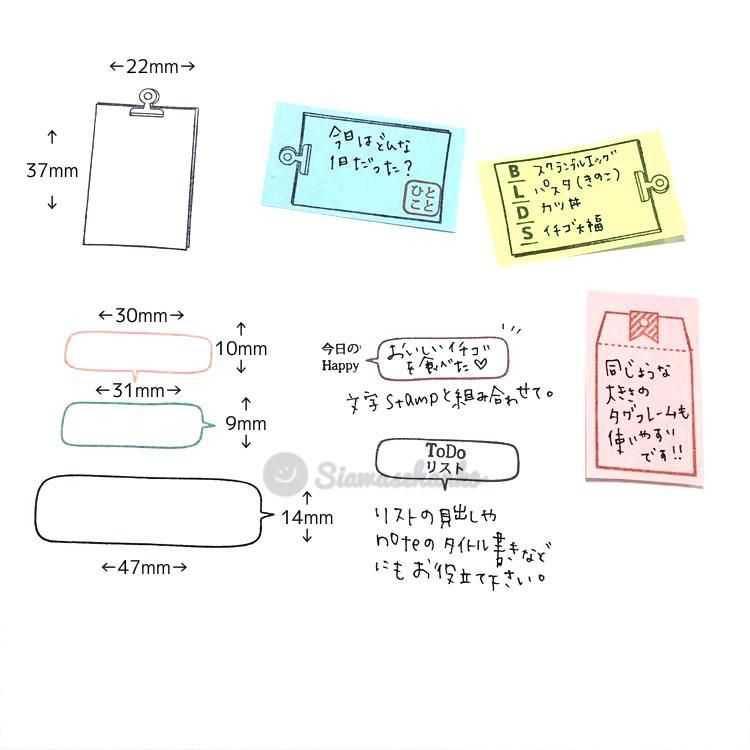 ←22mm→
↑
37mm
↓
今日はどんな
1日だった？
ひと
こと
B スクランブルエッグ
L パスタ(きのこ)
D カツ丼
S イチゴ大福
←30mm→
↑
10mm
↓
←31mm→
↑
9mm
↓
↑
14mm
↓
←47mm→
今日の
Happy
おいしいイチゴ
を食べた♡
文字stampと組み合わせて。
ToDo
リスト
Siawasehanko
リストの見出しや
noteのタイトル書きなど
にもお役立て下さい。
同じような
大きさの
タグフレームも
使いやすい
です!!